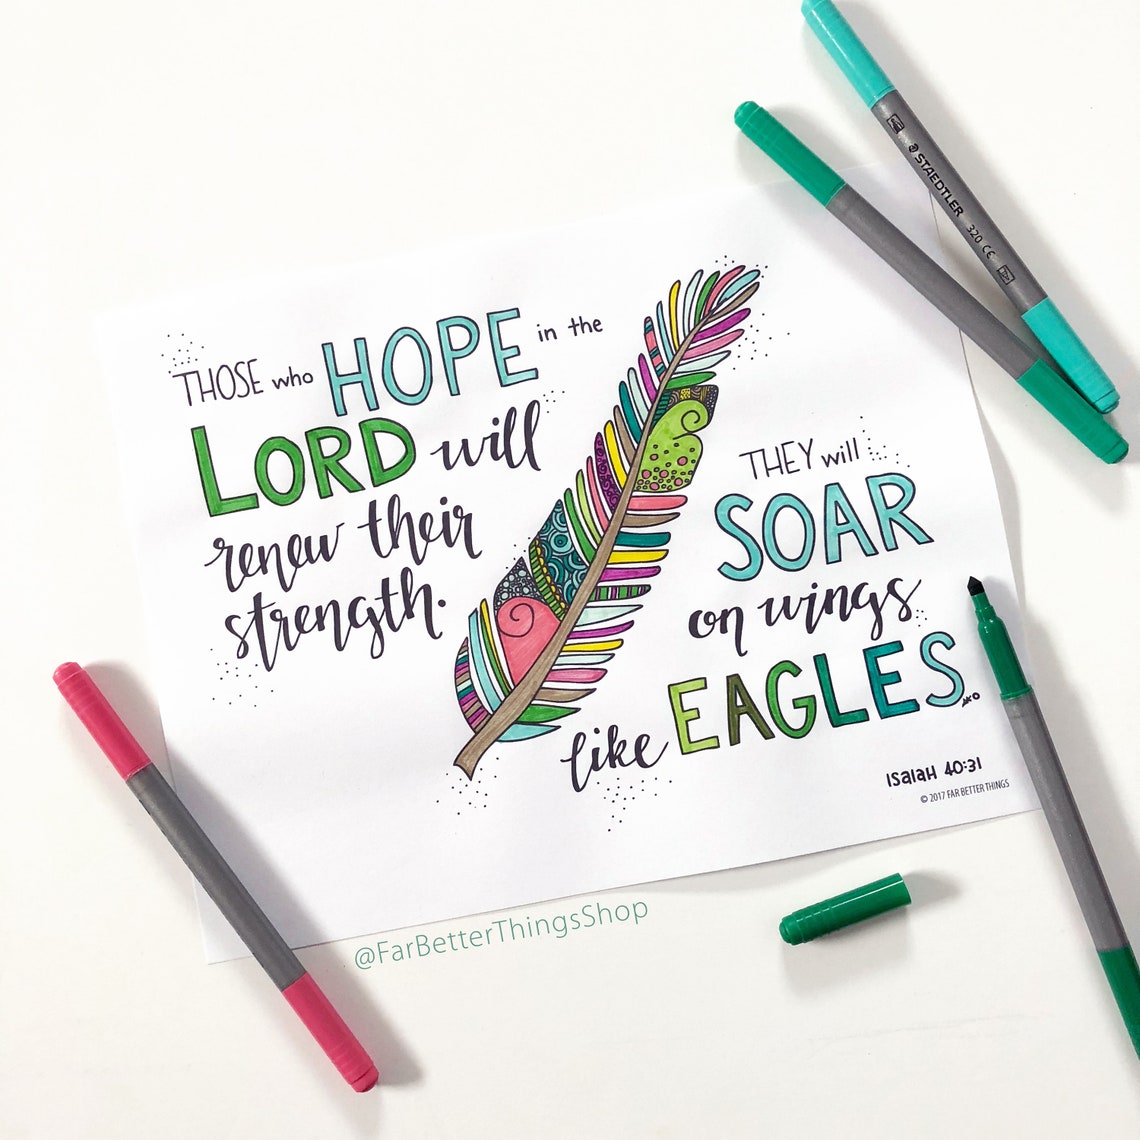 THOSE who HOPE in the
LORD will
renew their
strength.
THEY will
SOAR
on wings
like EAGLES.
ISAIAH 40:31
© 2017 FAR BETTER THINGS
@FarBetterThingsShop
STAEDTLER 320 CE